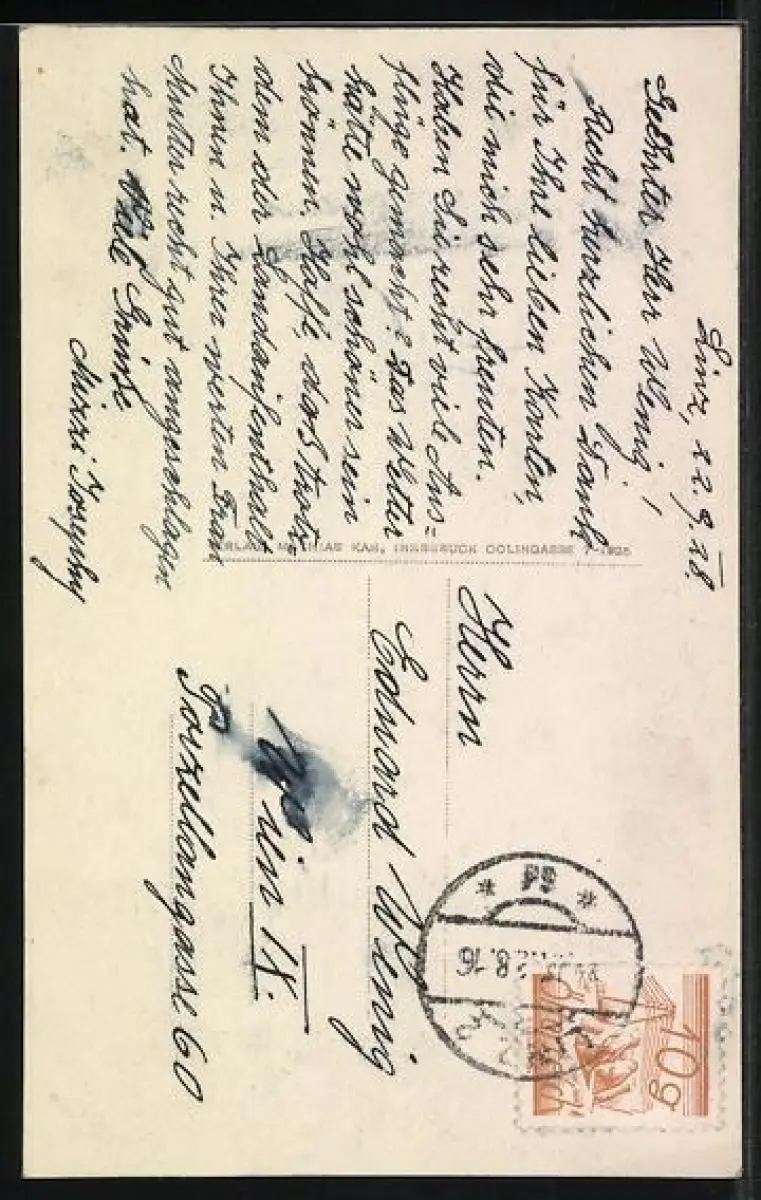 Linz, 22.9.28.
Geehrter Herr Wenig!
Recht herzlichen Dank
für Ihre lieben Karten,
die mich sehr freuten.
Haben Sie recht viele Aus=
flüge gemacht? Das Wetter
hätte wohl schöner sein
können. Hoffe, daß trotz=
dem der Landaufenthalt
Ihnen u. Ihrer werten Frau
Mutter recht gut angeschlagen
hat. Viele Grüße
Mizzi Josephy
VERLAG MATHIAS KAH, INNSBRUCK COLINGASSE 7-1925
Herrn
Eduard Wenig
Wien IX.
Porzellangasse 60
10g